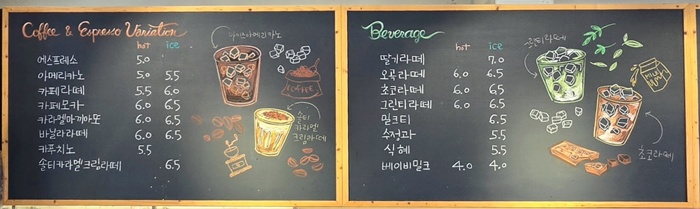 Coffee & Espresso Variation
hot ice
에스프레소 5.0
아메리카노 5.0 5.5
카페라떼 5.5 6.0
카페모카 6.0 6.5
카라멜마끼아또 6.0 6.5
바닐라라떼 6.0 6.5
카푸치노 5.5
솔티카라멜크림라떼 6.5
아이스아메리카노
COFFEE
솔티
카라멜
크림라떼
Beverage
hot ice
딸기라떼 7.0
오곡라떼 6.0 6.5
초코라떼 6.0 6.5
그린티라떼 6.0 6.5
밀크티 6.5
수정과 5.5
식혜 5.5
베이비밀크 4.0 4.0
그린티라떼
초코라떼